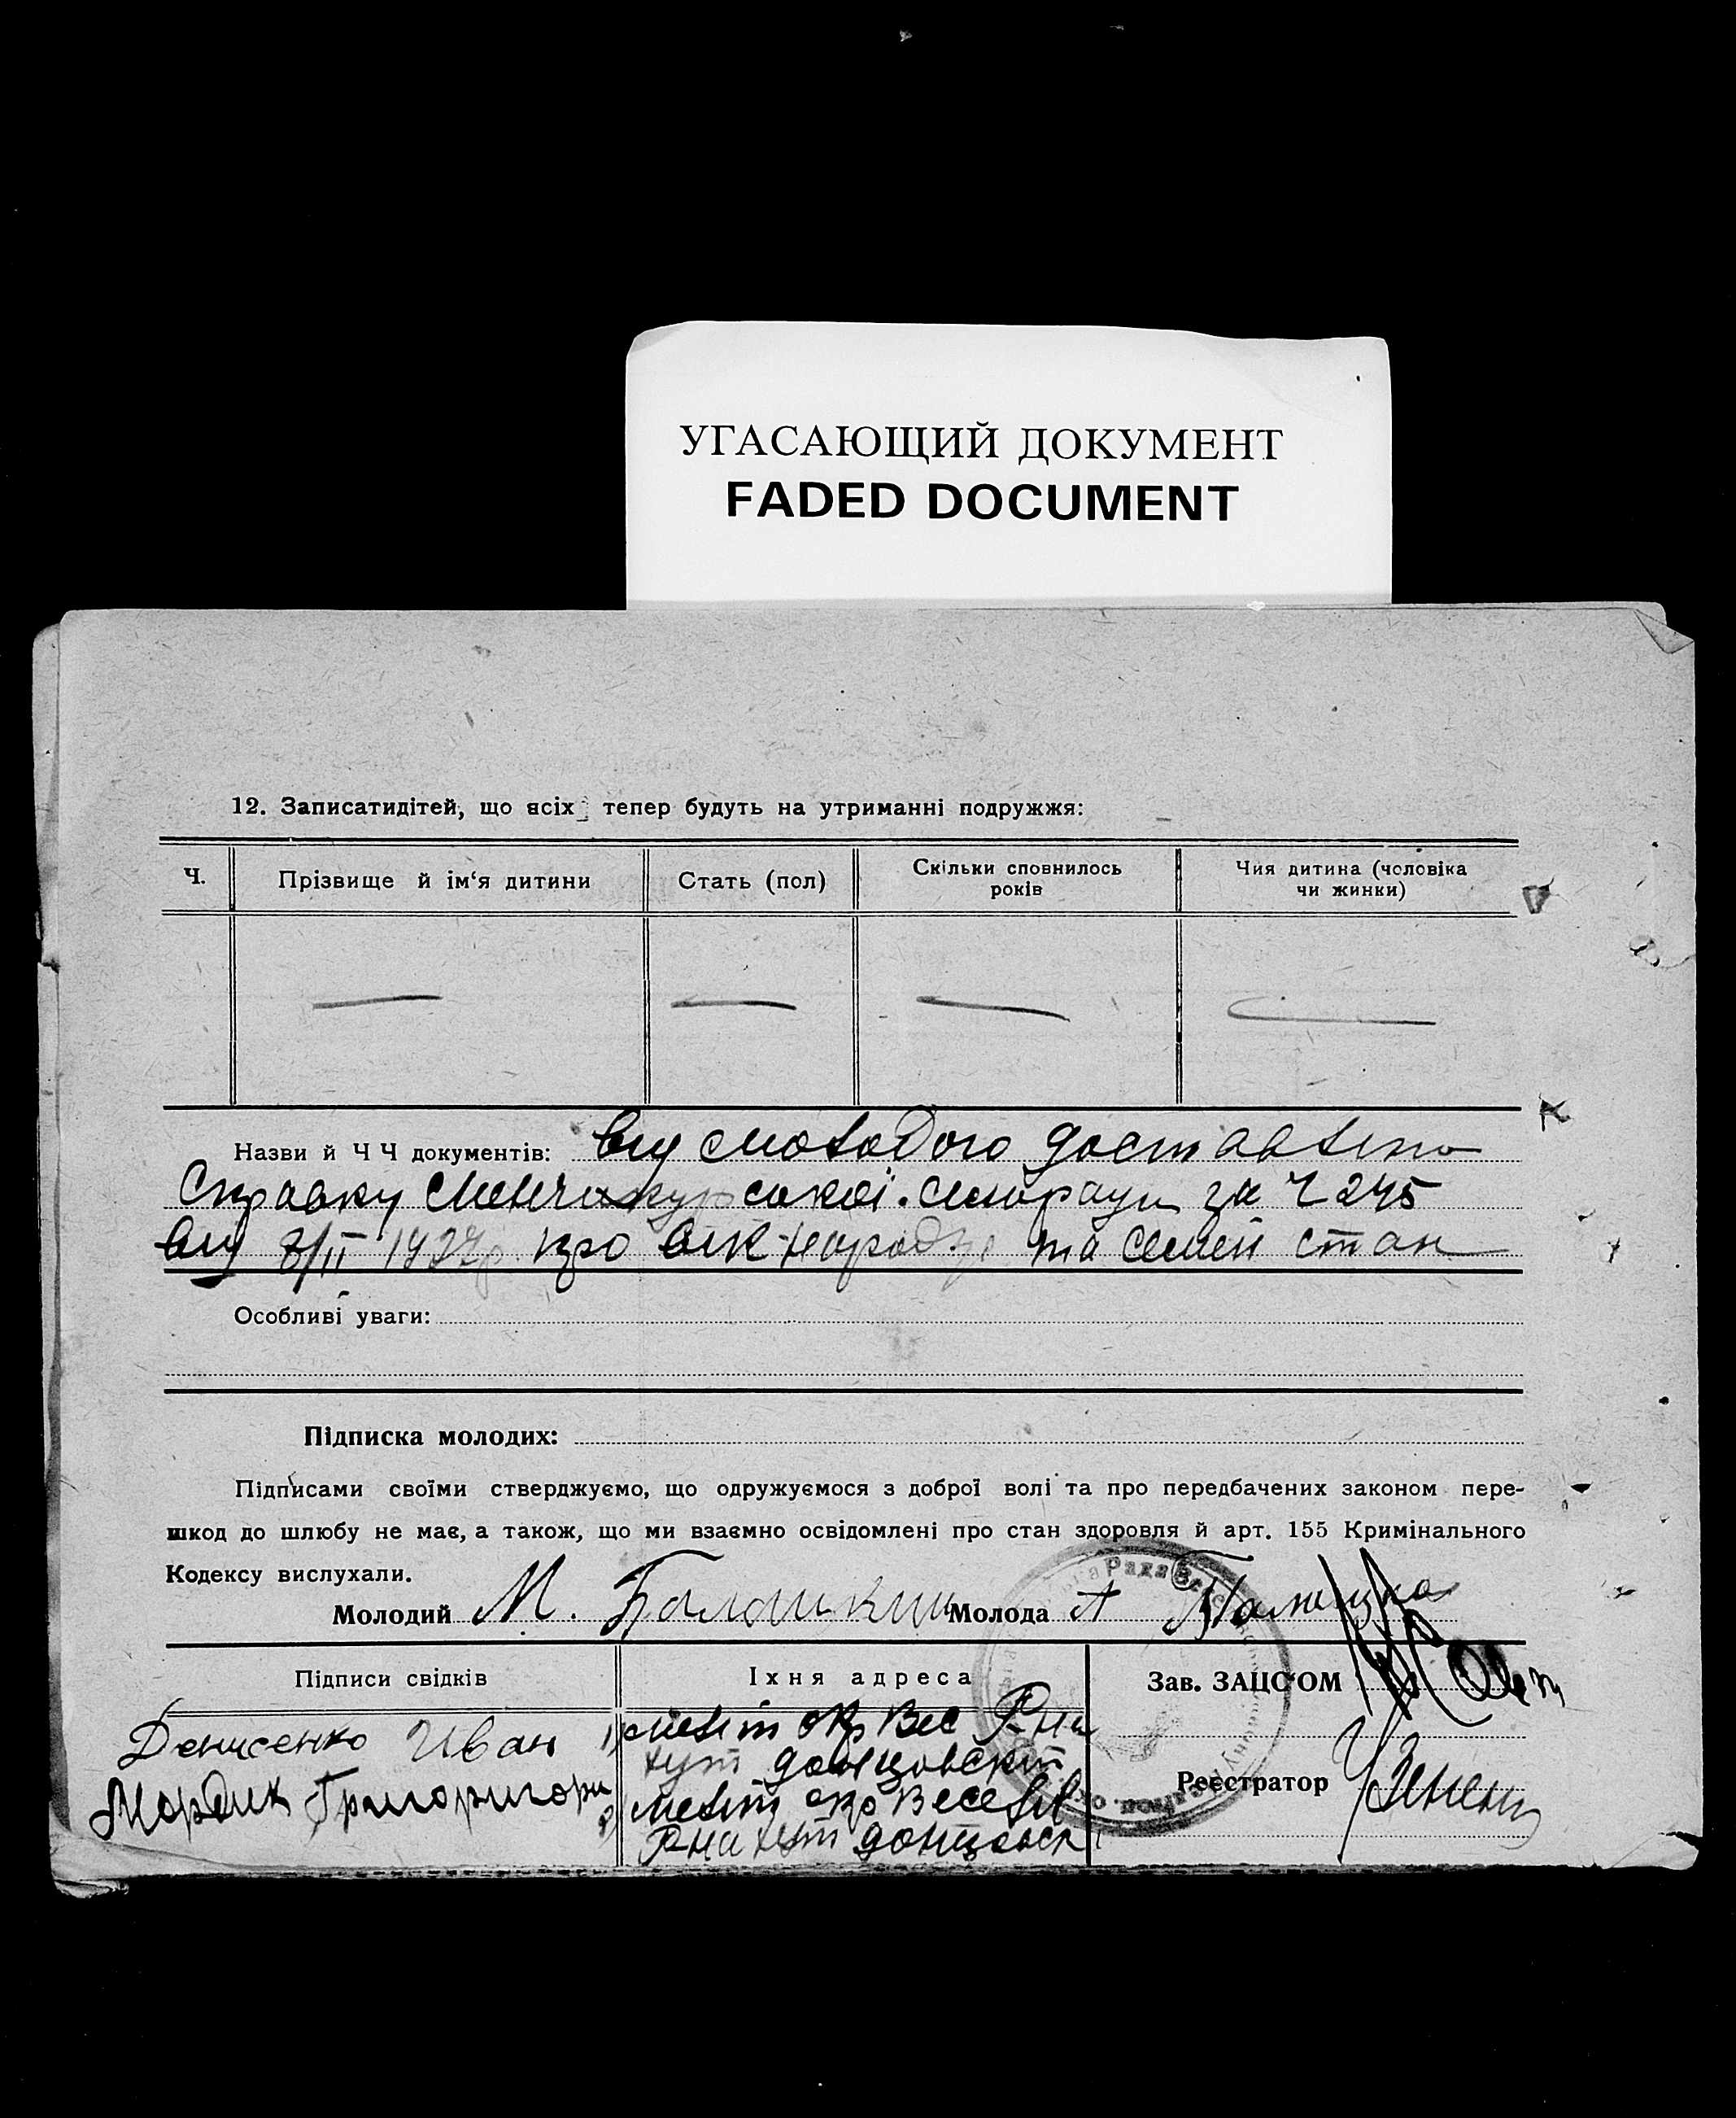 УГАСАЮЩИЙ ДОКУМЕНТ
FADED DOCUMENT
12. Записатидітей, що всіх тепер будуть на утриманні подружжя:
Ч.
Прізвище й ім‘я дитини
Стать (пол)
Скільки сповнилось
років
Чия дитина (чоловіка
чи жинки)
Назви й Ч Ч документів: від молодого доставлено
Справку Менчикурської сільради за Ч 245
від 8/II 1927р про вік народж та семей стан
Особливі уваги:
Підписка молодих:
Підписами своїми стверджуємо, що одружуємося з доброї волі та про передбачених законом пере-
шкод до шлюбу не має, а також, що ми взаємно освідомлені про стан здоровля й арт. 155 Кримінального
Кодексу вислухали.
Молодий М. Балашкин Молода А
Підписи свідків
Їхня адреса
Зав. ЗАЦС'ОМ
Денисенко Иван
1) меліт окр Вес Рна
хут донцовскт
Мордик Григоригори
2) меліт окр Веселів
Рна хут донцовск
Реєстратор